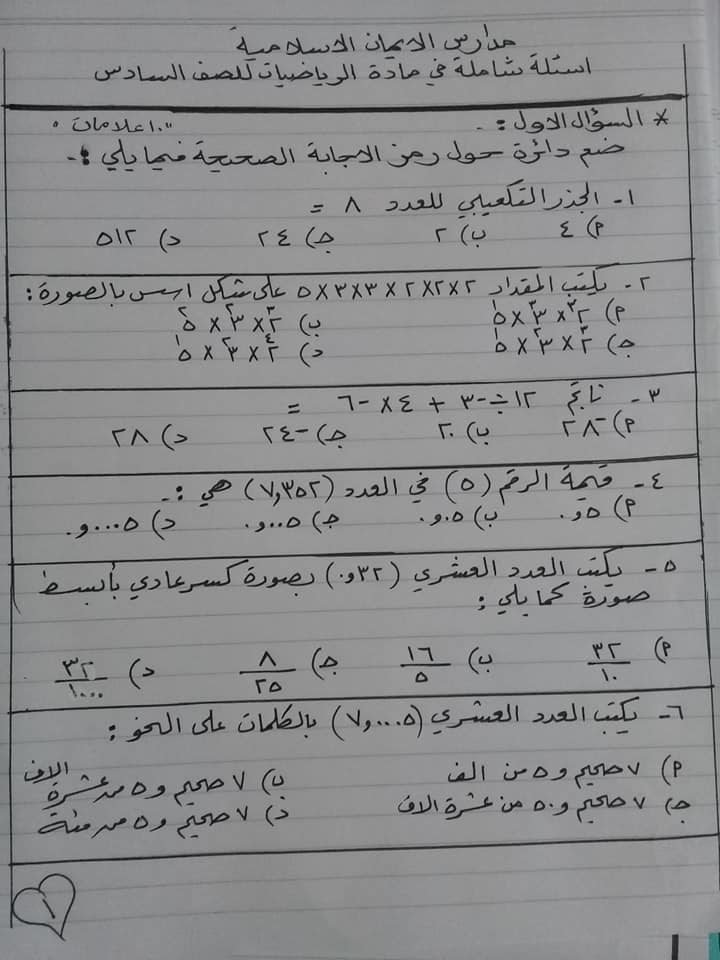 مدارس الايمان الاسلامية
اسئلة شاملة في مادة الرياضيات للصف السادس
* السؤال الاول :- "١٠ علامات"
ضع دائرة حول رمز الاجابة الصحيحة فيما يلي :-
١- الجذر التكعيبي للعدد ٨ =
أ) ٤ ب) ٢ ج) ٢٤ د) ٥١٢
٢- يكتب المقدار ٢×٢×٢×٣×٣×٥ على شكل اسس بالصورة :
أ) ٢³ × ٣³ × ٥¹ ب) ٢³ × ٣² × ٥²
ج) ٢³ × ٣² × ٥¹ د) ٢⁴ × ٣² × ٥¹
٣- ناتج ١٢ ÷ -٣ + ٤ × -٦ =
أ) -٢٨ ب) ٢٠ ج) -٢٤ د) ٢٨
٤- قيمة الرقم (٥) في العدد (٧,٣٥٢) هي :-
أ) ٠,٥ ب) ٠,٠٥ ج) ٠,٠٠٥ د) ٠,٠٠٠٥
٥- يكتب العدد العشري (٠,٣٢) بصورة كسر عادي بأبسط
صورة كما يلي :
أ) ٣٢/١٠ ب) ١٦/٥ ج) ٨/٢٥ د) ٣٢/١٠٠٠
٦- يكتب العدد العشري (٧,٠٠٠٥) بالكلمات على النحو :
أ) ٧ صحيح و ٥ من الف ب) ٧ صحيح و ٥ من عشرة الاف
ج) ٧ صحيح و ٥٠ من عشرة الاف د) ٧ صحيح و ٥ من مئة
١